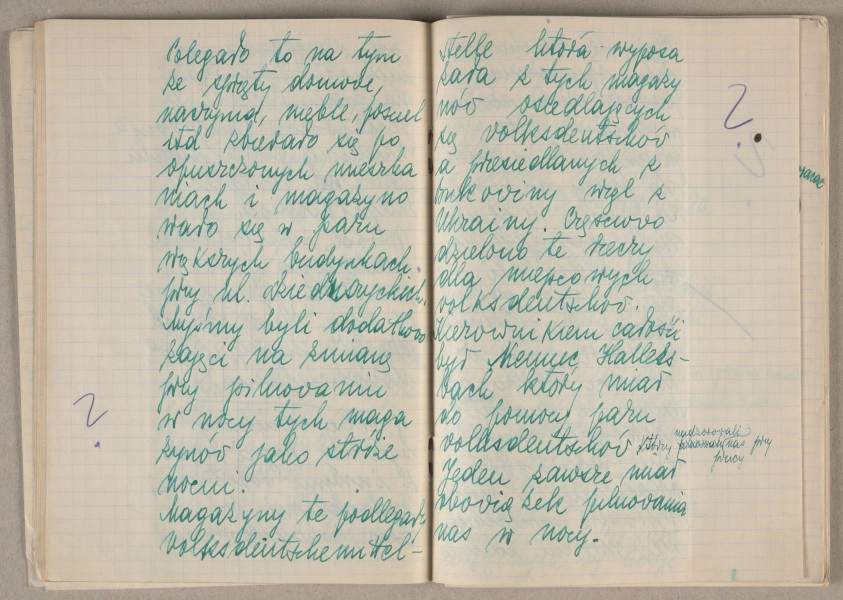 Polegało to na tym
że sprzęty domowe,
naczynia, meble, pościel
itd zbierało się po
opuszczonych mieszka
niach i magazyno
wało się w paru
większych budynkach
przy ul. Dzieduszyckich.
Myśmy byli dodatkowo
zajęci na zmianę
przy pilnowaniu
w nocy tych maga
zynów jako stróże
nocni.
Magazyny te podlegały
Volksdeutschemittel-
stelle która wyposa
żała z tych magazy
nów osiedlających
się volksdeutschów
a przesiedlanych z
Bukowiny wzgl z
Ukrainy. Częściowo
dzielono te rzeczy
dla miejscowych
volksdeutschów.
Kierownikiem całości
był Niemiec
bach który miał
do pomocy paru
volksdeutschów którzy nadzorowali nas przy
pracy
Jeden zawsze miał
obowiązek pilnowania
nas w nocy.
?
?